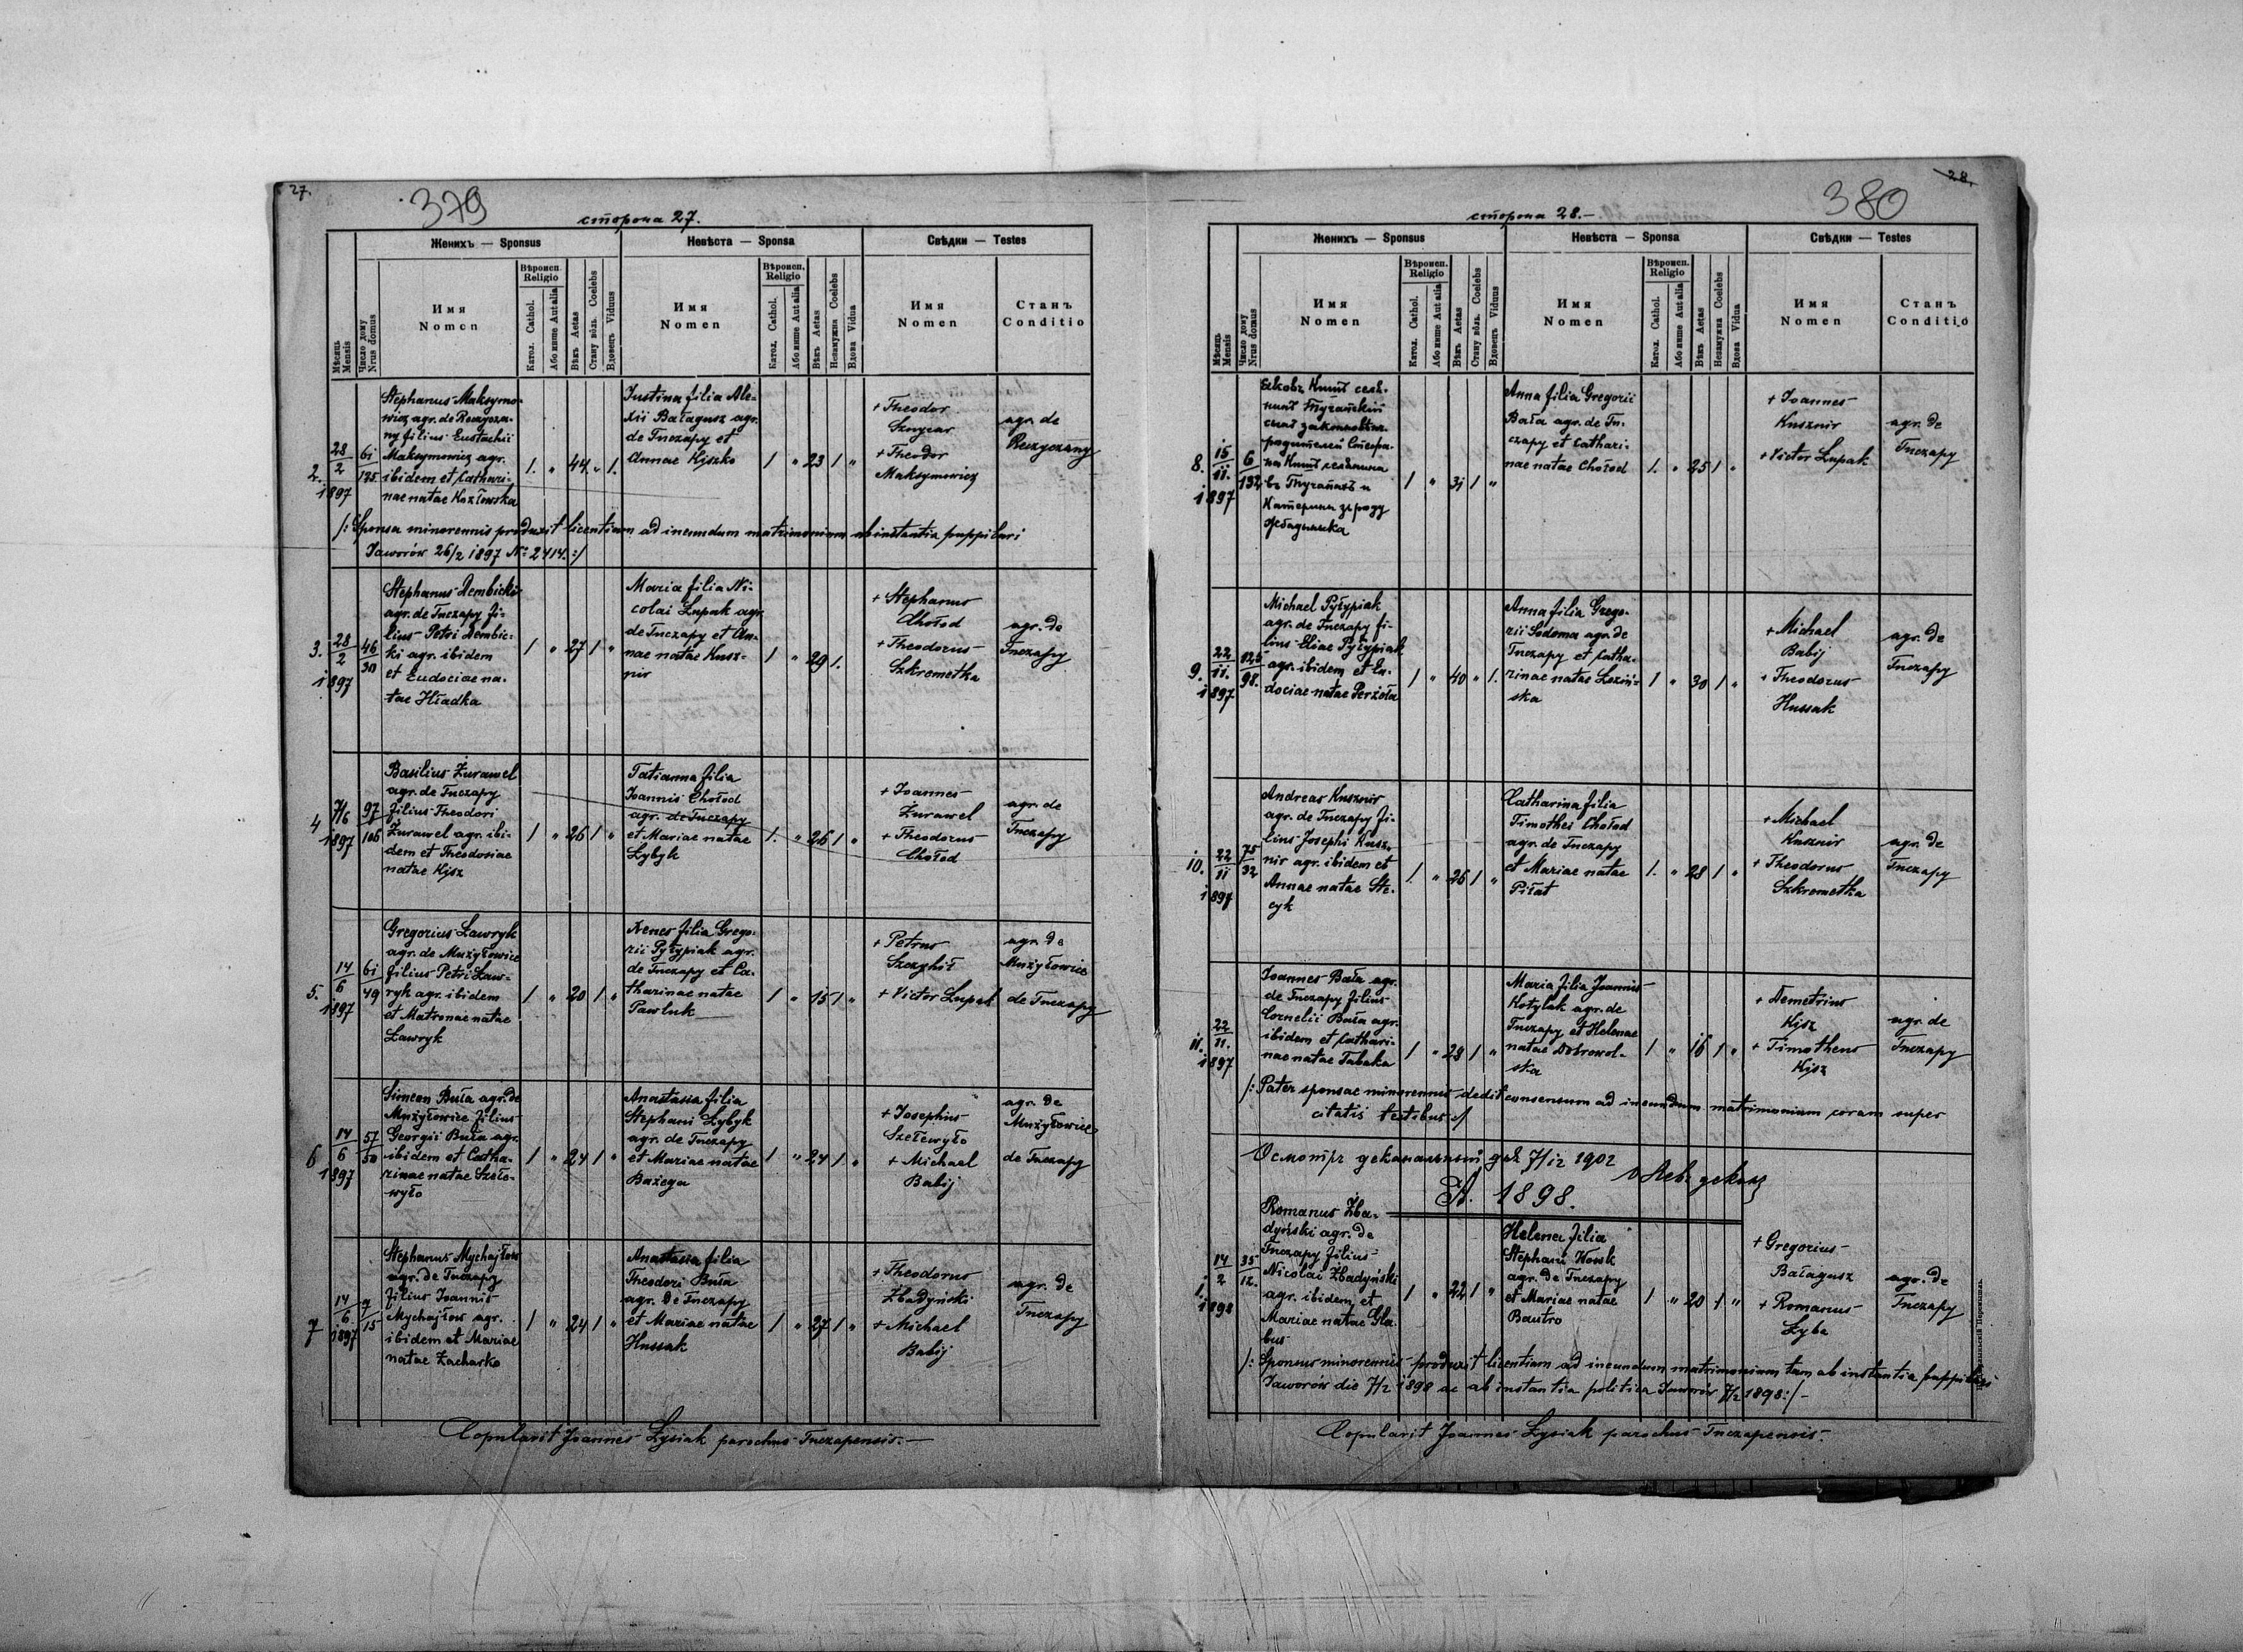 27.
379
сторона 27.
Женихъ — Sponsus
Невѣста — Sponsa
Свѣдки — Testes
Мѣсяць Mensis
Число дому Nrus domus
Имя Nomen
Вѣроисп. Religio
Катол. Cathol.
Або инше Aut alia
Вѣкъ Aetas
Стану вôль. Coelebs
Вдовецъ Viduus
Имя Nomen
Вѣроисп. Religio
Катол. Cathol.
Або инше Aut alia
Вѣкъ Aetas
Незамужна Coelebs
Вдова Vidua
Имя Nomen
Станъ Conditio
2. 28/2 1897
61 135
Stephanus Maksymo-
wicz agr. de Reczycza-
ny filius Eustachii
Maksymowicz agr.
ibidem et Cathari-
nae natae Kozłowska
1. " 44 " 1.
Justina filia Ale-
xii Bałagusz agr.
de Tuczapy et
Annae Kiszko
1 " 23 1 "
+ Theodor
Sznycar
+ Theodor
Maksymowicz
agr. de
Reczyczany
/: Sponsa minorennis produxit licentiam ad ineundum matrimonium ab instantia puppilari
Jaworów 26/2 1897 N: 2414. :/
3. 28/2 1897
46 30
Stephanus Dembicki
agr. de Tuczapy fi-
lius Petri Dembic-
ki agr. ibidem
et Eudociae na-
tae Hładka
1 " 27 1 "
Maria filia Ni-
colai Łupak agr.
de Tuczapy et An-
nae natae Kusz-
nir
1 " 29 1.
+ Stephanus
Chołod
+ Theodorus
Szkrometka
agr. de
Tuczapy
4 7/6 1897
97 106
Basilius Żurawel
agr. de Tuczapy
filius Theodori
Żurawel agr. ibi-
dem et Theodosiae
natae Kisz
1 " 26 1 "
Tatianna filia
Joannis Chołod
agr. de Tuczapy
et Mariae natae
Łybyk
1. " 26 1 "
+ Joannes
Żurawel
+ Theodorus
Chołod
agr. de
Tuczapy
5. 14/6 1897
61 49
Gregorius Ławryk
agr. de Mużyłowice
filius Petri Ław-
ryk agr. ibidem
et Matronae natae
Ławryk
1 " 20 1 "
Xenes filia Grego-
rii Pyłypiak agr.
de Tuczapy et Ca-
tharinae natae
Pawluk
1 " 15 1 "
+ Petrus
+ Victor Łupak
agr. de
Mużyłowice
de Tuczapy
6 14/6 1897
57 50
Simeon Buła agr. de
Mużyłowice filius
Georgii Buła agr.
ibidem et Catha-
rinae natae Szełe-
wyło
1 " 24 1 "
Anastasia filia
Stephani Łybyk
agr. de Tuczapy
et Mariae natae
1 " 24 1 "
+ Josephus
Szełewyło
+ Michael
Babij
agr. de
Mużyłowice
de Tuczapy
7 14/6 1897
7 15
Stephanus Mychajłow
agr. de Tuczapy
filius Joannis
Mychajłow agr.
ibidem et Mariae
natae Zacharko
1 " 24 1 "
Anastasia filia
Theodori Buła
agr. de Tuczapy
et Mariae natae
Hussak
1 " 27 1 "
+ Theodorus
Żbadyński
+ Michael
Babij
agr. de
Tuczapy
Copulavit Joannes Łysiak parochus Tuczapensis. —
28.
380
сторона 28. —
Женихъ — Sponsus
Невѣста — Sponsa
Свѣдки — Testes
Мѣсяць Mensis
Число дому Nrus domus
Имя Nomen
Вѣроисп. Religio
Катол. Cathol.
Або инше Aut alia
Вѣкъ Aetas
Стану вôль. Coelebs
Вдовецъ Viduus
Имя Nomen
Вѣроисп. Religio
Катол. Cathol.
Або инше Aut alia
Вѣкъ Aetas
Незамужна Coelebs
Вдова Vidua
Имя Nomen
Станъ Conditio
8. 15/11. 1897
6 132
родителей Стефа-
въ Тучапахъ и
Катерины зъ роду
1 " 31 1 "
Anna filia Gregorii
Bała agr. de Tu-
czapy et Cathari-
nae natae Chołod
1. " 25 1 "
+ Joannes
Kusznir
+ Victor Łupak
agr. de
Tuczapy
9. 22/11. 1897
125 98.
Michael Pyłypiak
agr. de Tuczapy fi-
lius Eliae Pyłypiak
agr. ibidem et Eu-
dociae natae Perżoła
1 " 40 " 1.
Anna filia Grego-
rii Sodoma agr. de
Tuczapy et Catha-
rinae natae Łoziń-
ska
1 " 30 1 "
+ Michael
Babij
+ Theodorus
Hussak
agr. de
Tuczapy
10. 22/11 1897
75 32
Andreas Kusznir
agr. de Tuczapy fi-
lius Josephi Kusz-
nir agr. ibidem et
Annae natae Ste-
cyk
1. " 26 1 "
Catharina filia
Timothei Chołod
agr. de Tuczapy
et Mariae natae
Piłat
1. " 28 1 "
+ Michael
Kusznir
+ Theodorus
Szkrometka
agr. de
Tuczapy
11. 22/11. 1897
Joannes Bała agr.
de Tuczapy filius
Cornelii Bała agr.
ibidem et Cathari-
nae natae Tabaka
1 " 28 1 "
Maria filia Joannis
Kotylak agr. de
Tuczapy et Helenae
natae Dobrowol-
ska
1 " 16 1 "
+ Demetrius
Kisz
+ Timotheus
Kisz
agr. de
Tuczapy
/: Pater sponsae minorennis dedit consensum ad ineundum matrimonium coram super
citatis testibus :/
Осмотръ деканальный дня 7/12 1902
A. 1898.
1. 14/2 1898
35 12.
Romanus Żba-
dyński agr. de
Tuczapy filius
Nicolai Żbadyński
agr. ibidem et
Mariae natae Hła-
bus
1 " 22 1 "
Helena filia
Stephani Kowk
agr. de Tuczapy
et Mariae natae
Bautro
1 " 20 1 "
+ Gregorius
Bałagusz
+ Romanus
Łyba
agr. de
Tuczapy
/: Sponsus minorennis produxit licentiam ad ineundum matrimonium tam ab instantia puppilari
Jaworów die 7/2 1898 ac ab instantia politica Jaworów 7/2 1898 :/ —
Copulavit Joannes Łysiak parochus Tuczapensis.